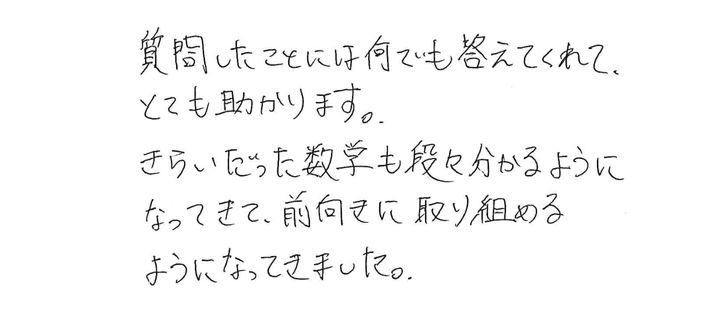 質問したことには何でも答えてくれて、
とても助かります。
きらいだった数学も段々分かるように
なってきて、前向きに取り組める
ようになってきました。